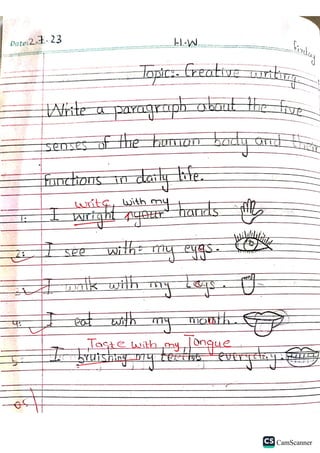 Date: 2.7.23 H.W Friday
Topic:. Creative writing
Write a paragraph about the five
senses of the human body and their
functions in daily life.
write with my
1: I wright your hands
2: I see with my eyes.
3: I walk with my legs.
4: I eat with my mouth.
Taste with my Tongue
5: I bruishing my teeths everyday.
CS CamScanner